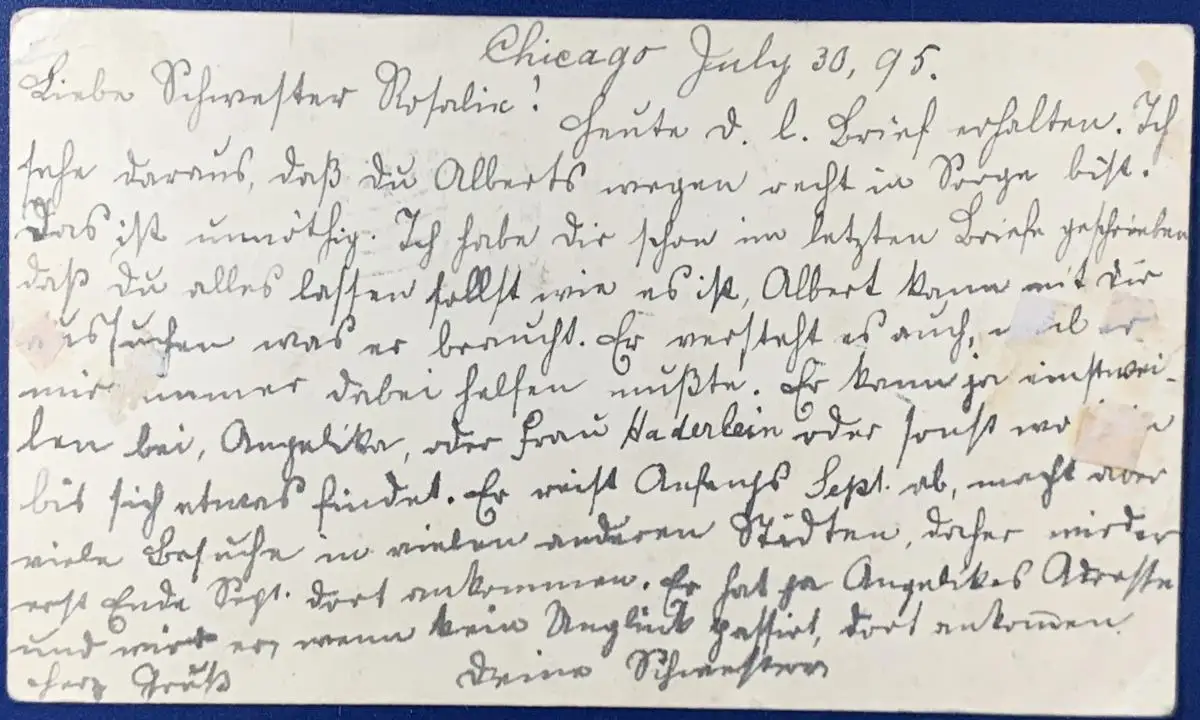 Chicago July 30, 95.
Liebe Schwester Rosalie!
Heute d. l. Brief erhalten. Ich
sehe daraus, daß du Alberts wegen recht in Sorge bist.
Das ist unnöthig. Ich habe dir schon im letzten Briefe geschrieben
daß du alles lassen sollst wie es ist, Albert kann mit dir
aussuchen was er braucht. Er versteht es auch, weil er
mir immer dabei helfen mußte. Er kann ja einstwei-
len bei, Angelika, oder Frau Haderlein oder sonst wo
bis sich etwas findet. Er reist Anfangs Sept. ab, macht aber
viele Besuche in vielen anderen Städten, daher wird er
erst Ende Sept. dort ankommen. Er hat ja Angelikas Adresse
und wird er, wenn kein Unglück passirt, dort ankommen.
Herz Gruß Deine Schwester